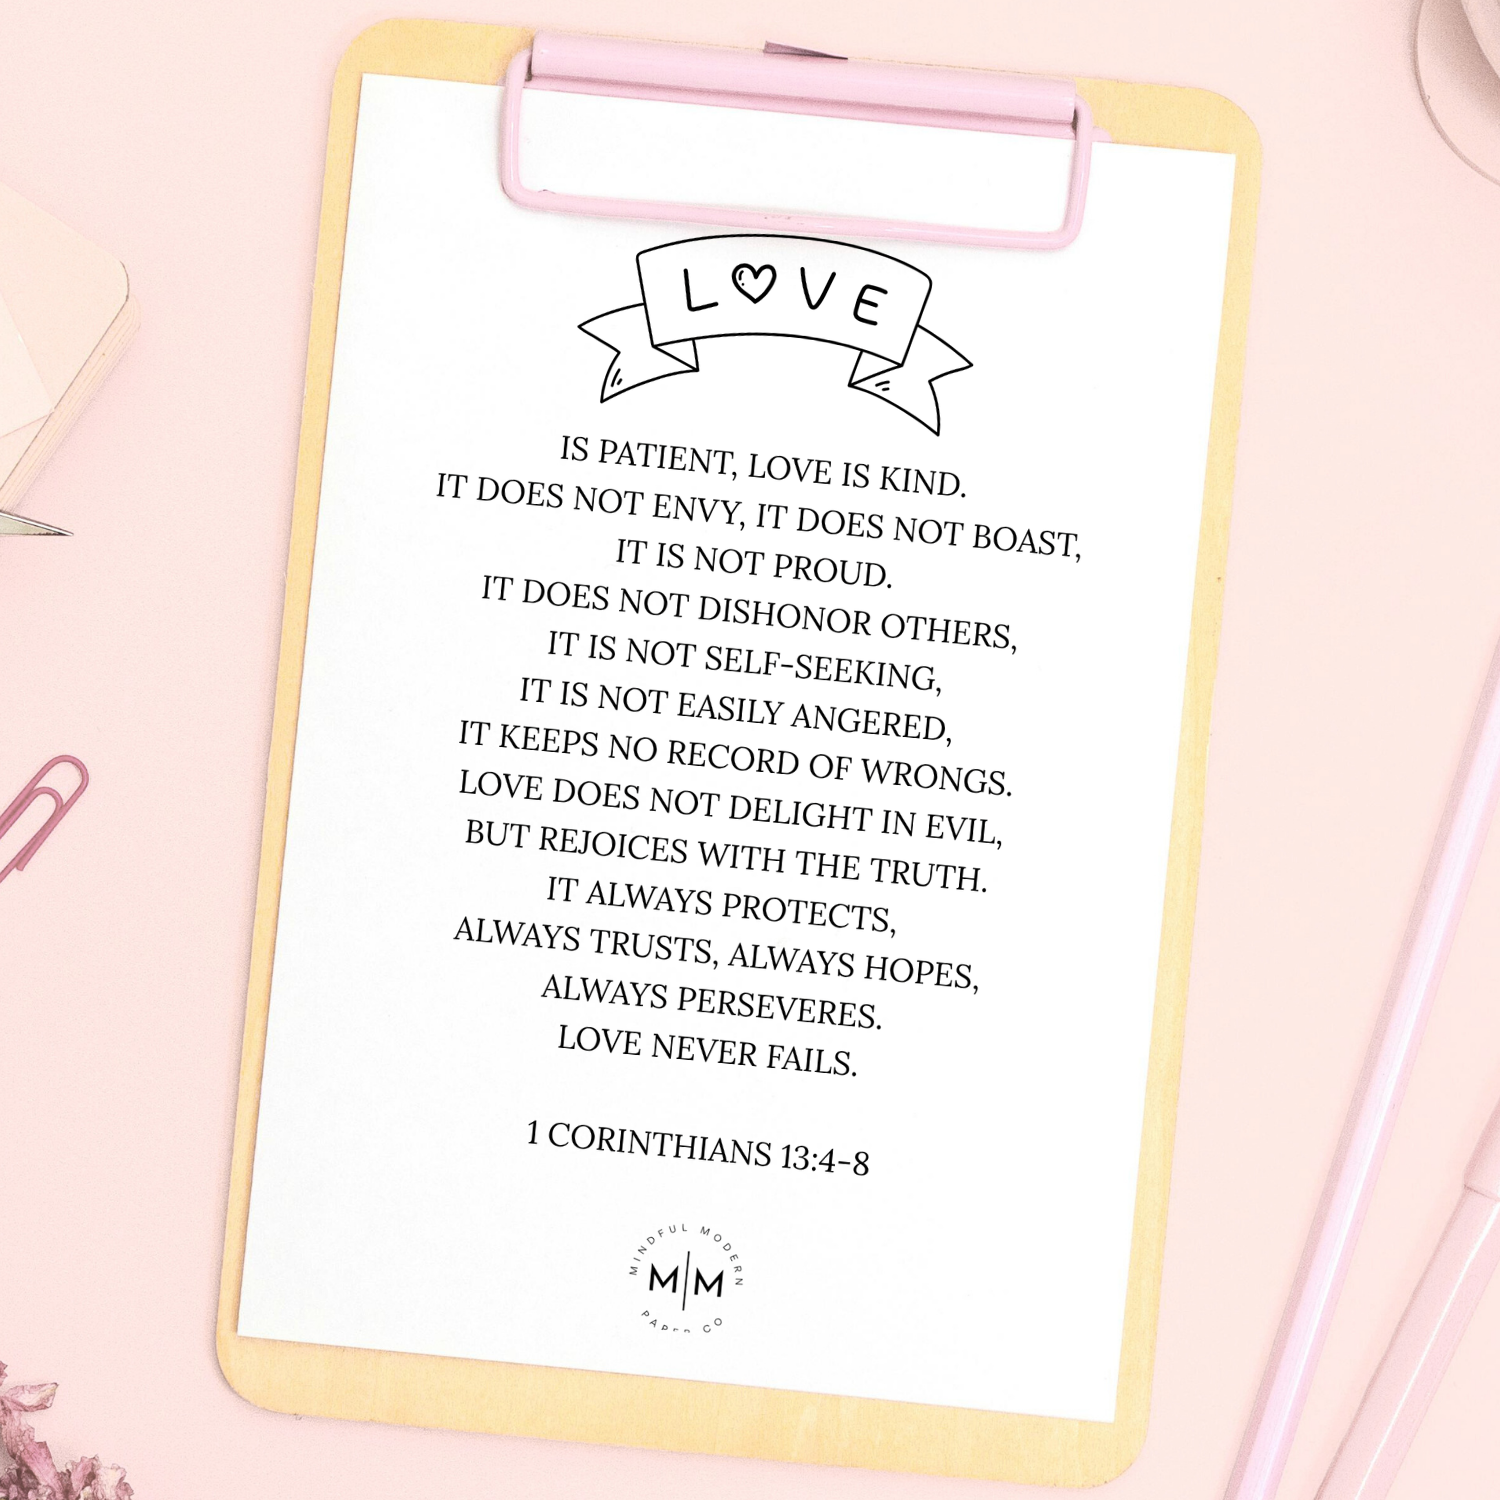 LOVE
IS PATIENT, LOVE IS KIND.
IT DOES NOT ENVY, IT DOES NOT BOAST,
IT IS NOT PROUD.
IT DOES NOT DISHONOR OTHERS,
IT IS NOT SELF-SEEKING,
IT IS NOT EASILY ANGERED,
IT KEEPS NO RECORD OF WRONGS.
LOVE DOES NOT DELIGHT IN EVIL,
BUT REJOICES WITH THE TRUTH.
IT ALWAYS PROTECTS,
ALWAYS TRUSTS, ALWAYS HOPES,
ALWAYS PERSEVERES.
LOVE NEVER FAILS.
1 CORINTHIANS 13:4-8
MINDFUL MODERN
M|M
PAPER CO